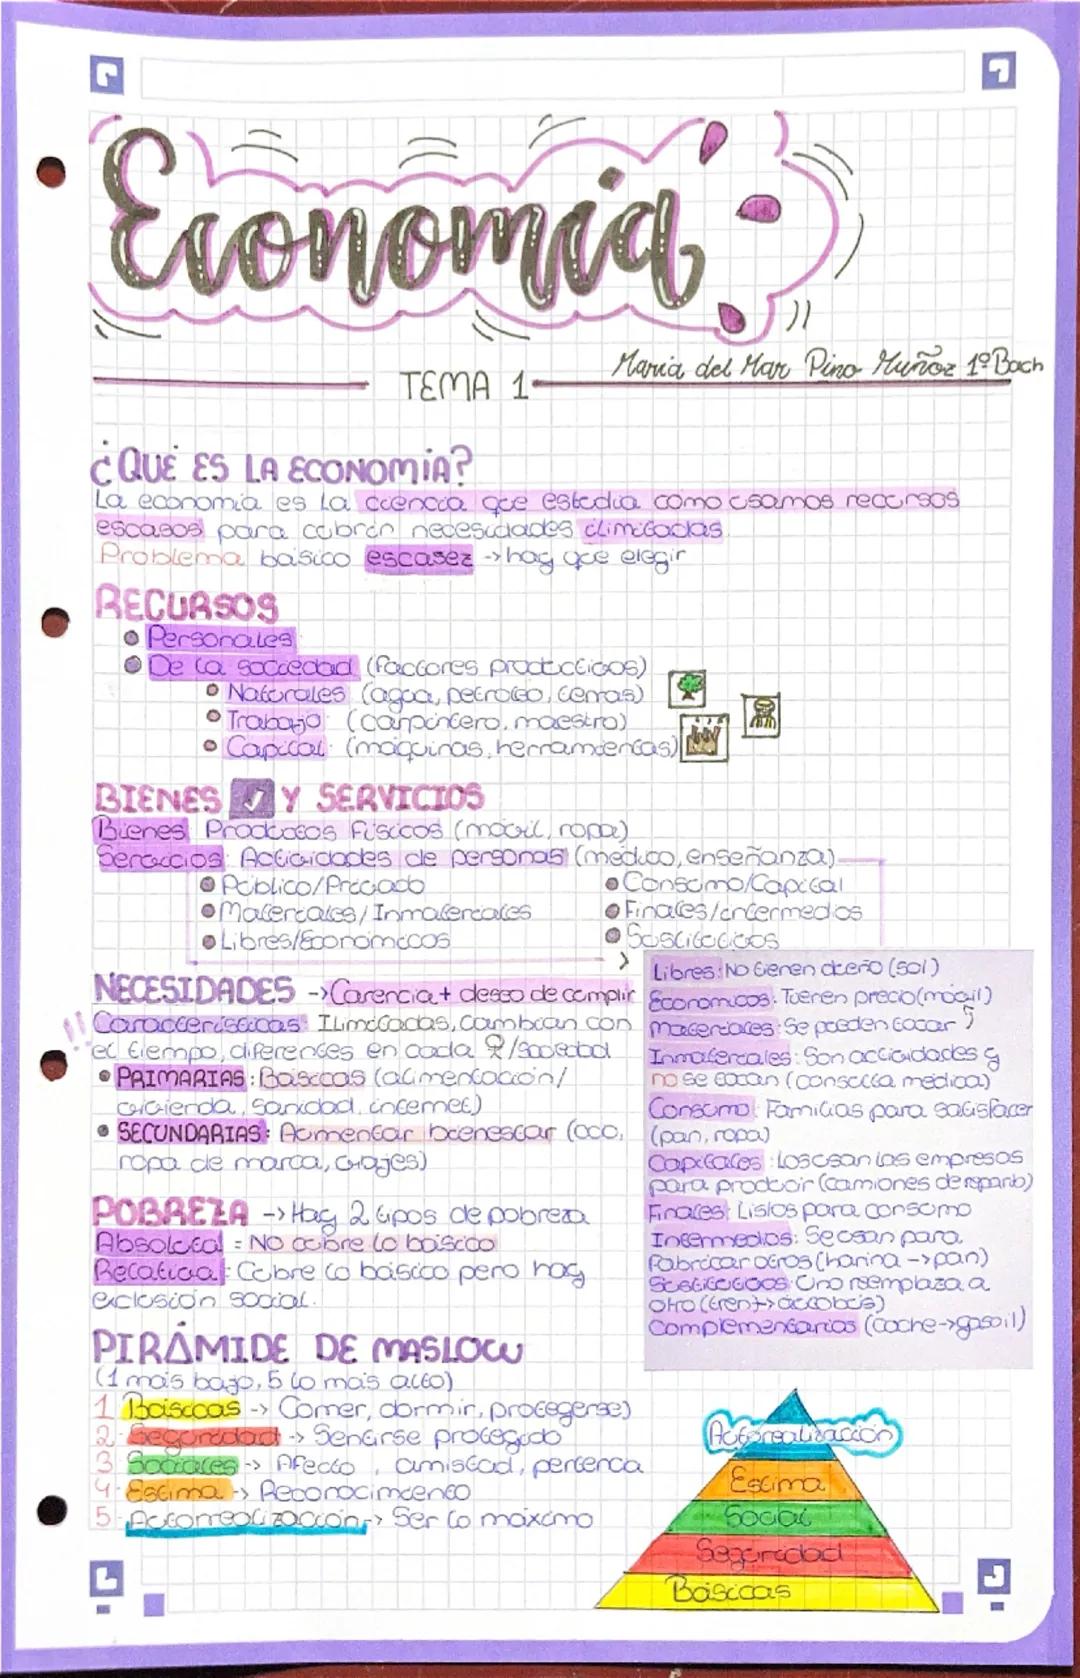 Economía
María del Mar Pino Muñoz 1º Bach
TEMA 1
¿QUÉ ES LA ECONOMÍA?
La economía es la ciencia que estudia como usamos recursos
escasos para cubrir necesidades ilimitadas.
Problema básico escasez -> hay que elegir
RECURSOS
Personales
De la sociedad (factores productivos)
Naturales (agua, petroleo, tierras)
Trabajo (carpintero, maestro)
Capital (máquinas, herramientas)
BIENES Y SERVICIOS
Bienes: Productos físicos (móvil, ropa)
Servicios: Actividades de personas (médico, enseñanza)
Público/Privado
Materiales/Inmateriales
Libres/Económicos
Consumo/Capital
Finales/intermedios
Sustitutivos
Libres: No tienen dueño (sol)
Economicos: Tienen precio (móvil)
Materiales: Se pueden tocar
Inmateriales: Son actividades y
no se tocan (consulta medica)
Consumo: Familias para satisfacer
(pan, ropa)
Capitales: Los usan las empresas
para producir (camiones de reparto)
Finales: Listos para consumo
Intermedios: Se usan para
fabricar otros (harina -> pan)
Sustitutivos: Uno reemplaza a
otro (tren -> autobús)
Complementarios (coche -> gasoil)
NECESIDADES -> Carencia + deseo de cumplir
!! Características: Ilimitadas, Cambian con
el tiempo, diferentes en cada /sociedad
PRIMARIAS: Básicas (alimentación/
vivienda, sanidad, internet)
SECUNDARIAS: Aumentar bienestar (ocio,
ropa de marca, viajes)
POBREZA -> Hay 2 tipos de pobreza
Absoluta = No cubre lo básico
Relativa: Cubre lo básico pero hay
exclusión social.
PIRÁMIDE DE MASLOW
(1 más bajo, 5 lo más alto)
1 Básicas -> Comer, dormir, protegerse)
2. Seguridad -> Sentirse protegido
3 Sociales -> Afecto, amistad, pertenencia
4. Estima -> Reconocimiento
5. Autorrealización -> Ser lo máximo
Autorrealización
Estima
Social
Seguridad
Básicas